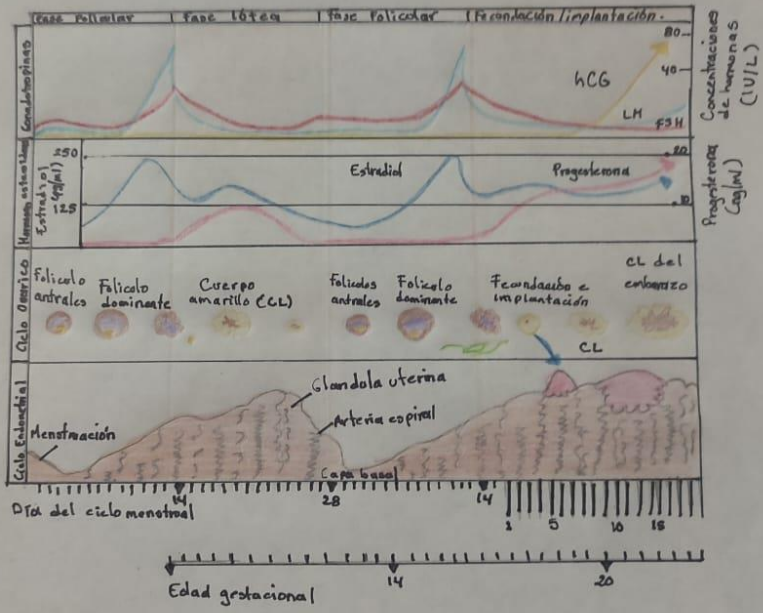 Fase Folicular
Fase lútea
Fase Folicolar
Fecondación/implantación.
Gonadotropinas
hCG
LH
FSH
80
40
Concentraciones
de hormonas
(IU/L)
Estradiol
250
125
Estradiol
Progesterona
20
10
Progesterona
Ciclo Ovarico
Folicolo
antrales
Folicolo
dominante
Cuerpo
amarillo (CL)
Folicolos
antrales
Folicolo
dominante
implantación
CL del
embarazo
CL
Ciclo Endometrial
Menstruación
Glandola uterina
Arteria espiral
Capa basal
14
28
14
Día del ciclo menstrual
1
5
10
15
14
20
Edad gestacional